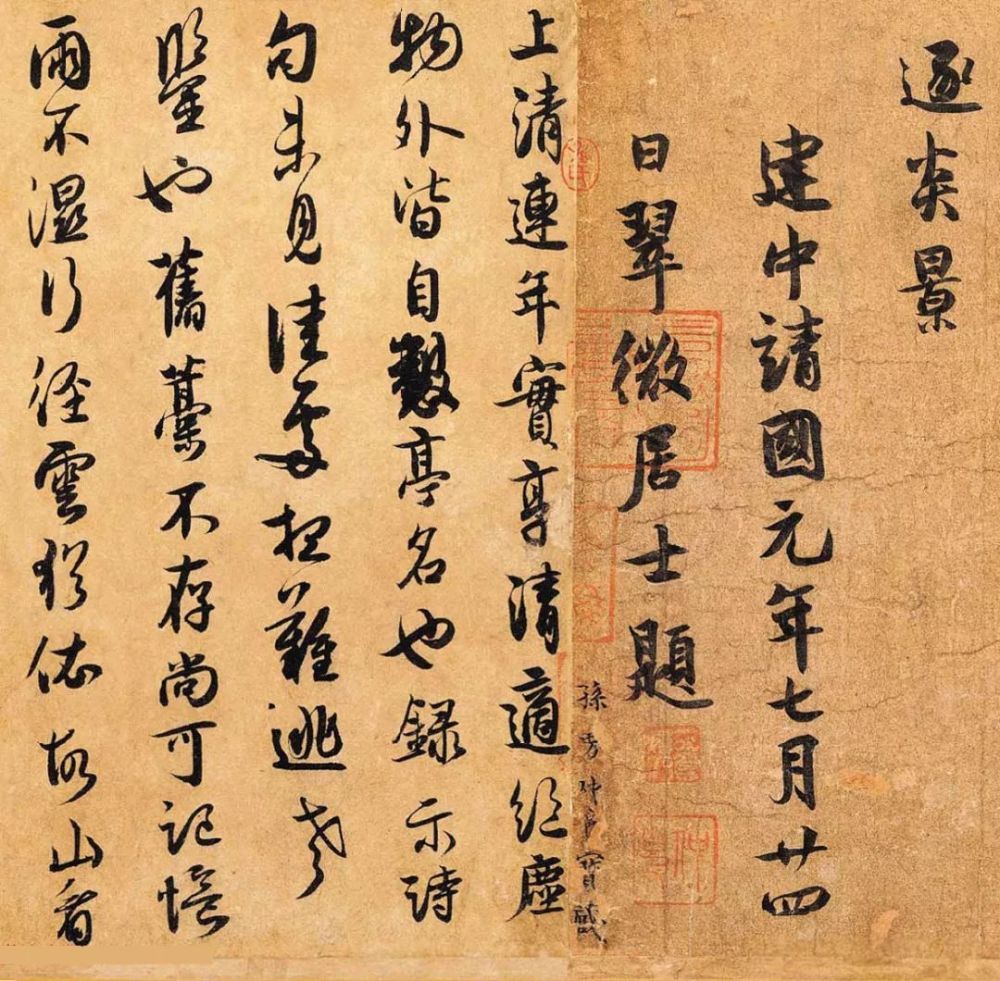 逐炎景
建中靖國元年七月廿四
日翠微居士題
上清連年實享清適絶塵
物外皆自製亭名也録示詩
句未見佳處但難逃老
鑒也舊藁不存尚可記憶
雨不濕行徑雲猶依故山看